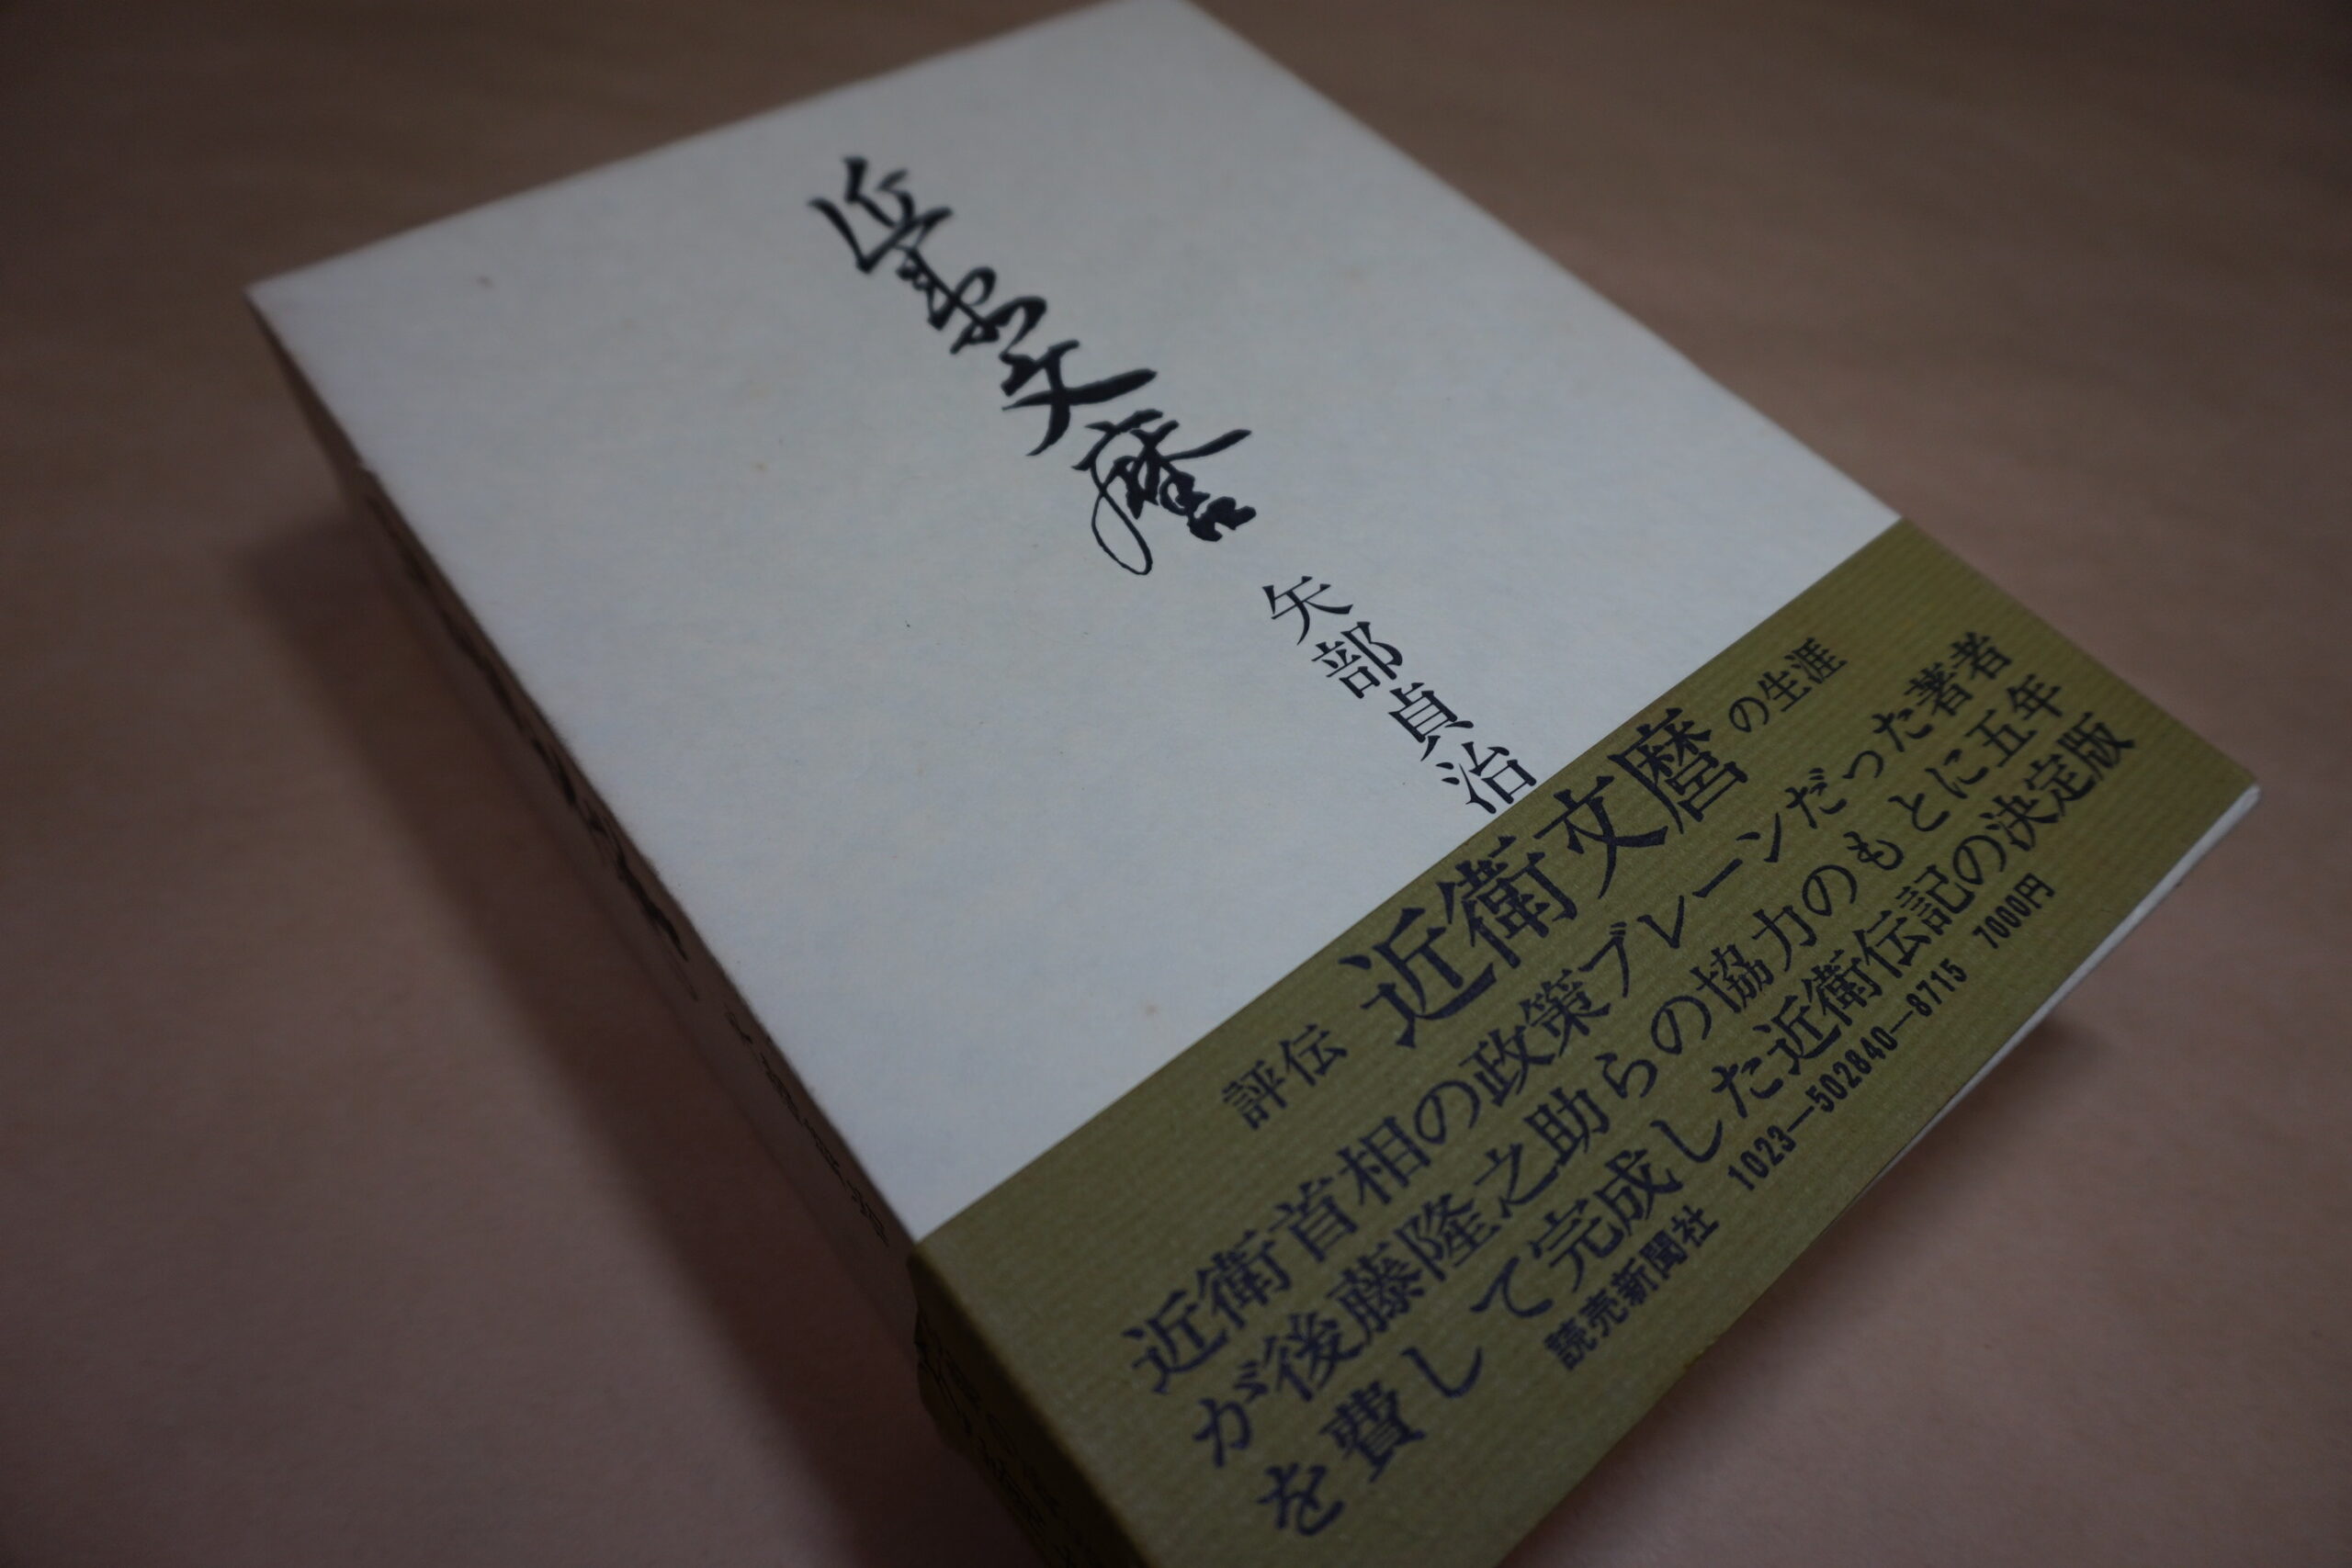 近衛文麿
矢部貞治
評伝 近衛文麿の生涯
近衛首相の政策ブレーンだった著者
が後藤隆之助らの協力のもとに五年
を費して完成した近衛伝記の決定版
読売新聞社 1023—502840—8715 7000円